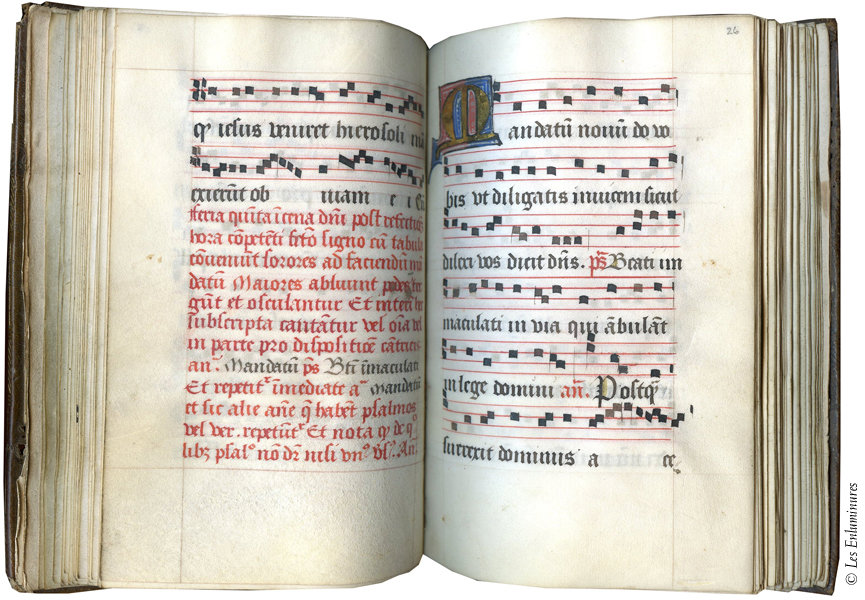 qꝫ iesus veniret hierosoli ma
exierunt ob uiam e i Cū
feria quīta ī cena dn̄i post refectiōꝫ
hora cōpetēti fc̄to signo cū tabula
cōveniūt sorores ad faciendū mā
datū Maiores abluunt pedes ter
gūt et osculantur Et interī hec
subscripta cantātur vel oīa vel
in parte pro dispositiōe cātricis
an̄. Mandatū ps̄ Bt̄i īmaculati
Et repetit᷑ īmediate a᷑ mandatū
et sic alie an̄e q̄ habēt psalmos
vel ver. repetūt᷑ Et nota qꝫ de q
libꝫ psal᷑ nō dr̄ nisi vn᷑ vs᷑. An᷑.
26
Mandatū nouū do vo
bis vt diligatis inuicem sicut
dilexi vos dicit dn̄s. ps̄ Beati im
maculati in via qui ābulāt
in lege domini an̄. Postqꝫ
surrexit dominus a ce
© Les Enluminures